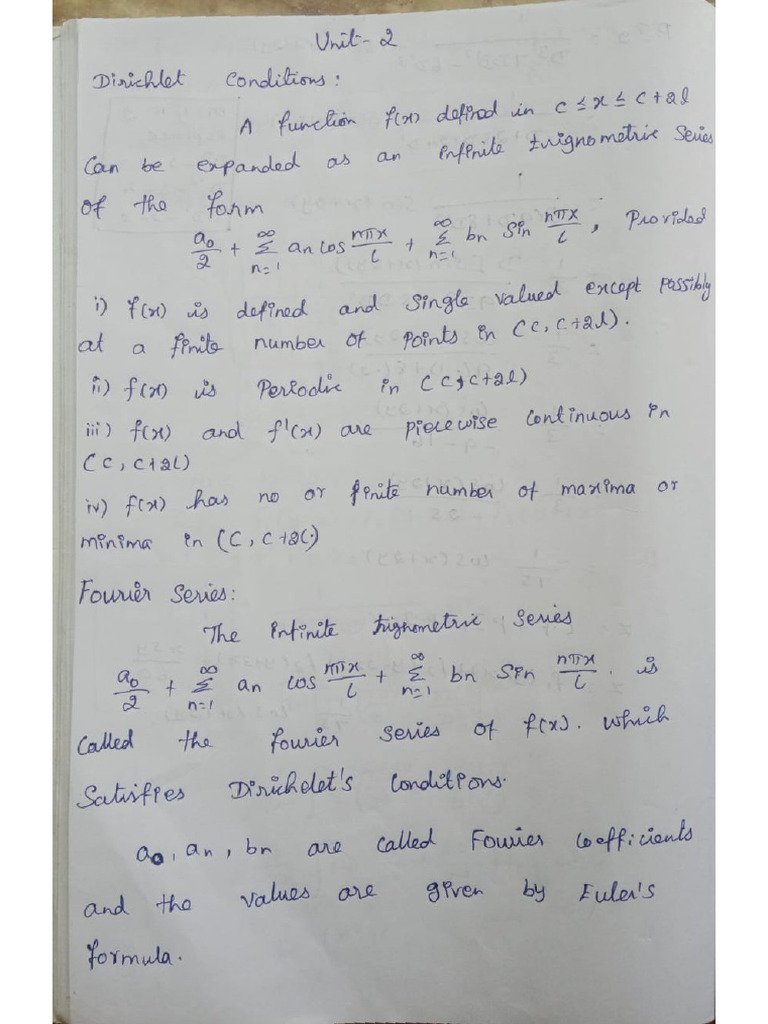 Unit- 2
Dirichlet Conditions:
A function f(x) defined in c ≤ x ≤ c+2l
Can be expanded as an infinite trignometric Series
of the form
a₀/2 + Σ_{n=1}^{∞} an cos nπx/l + Σ_{n=1}^{∞} bn Sin nπx/l, Provided
i) f(x) is defined and single valued except possibly
at a finite number of points in (c, c+2l).
ii) f(x) is Periodic in (c, c+2l)
iii) f(x) and f'(x) are piecewise continuous in
(c, c+2l)
iv) f(x) has no or finite number of maxima or
minima in (c, c+2l)
Fourier Series:
The infinite trignometric series
a₀/2 + Σ_{n=1}^{∞} an cos nπx/l + Σ_{n=1}^{∞} bn Sin nπx/l. is
called the fourier series of f(x). which
Satisfies Dirichelet's Conditions.
a₀, an, bn are called Fourier coefficients
and the values are given by Euler's
formula.